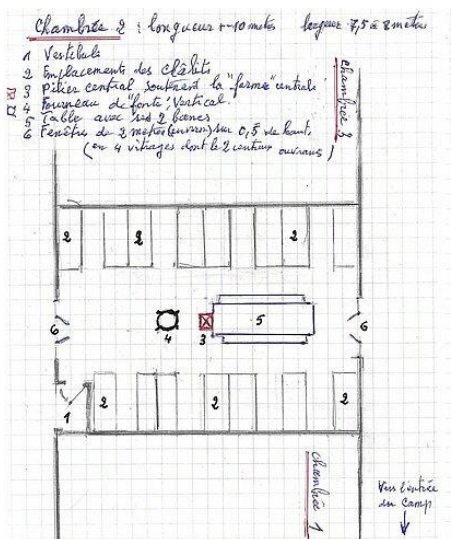 Chambrée 2 : longueur +-10 metres largeur 7,5 à 8 metres
1 Vestibule
2 Emplacements des châlits
3 Pilier central soutenant la "ferme" centrale
4 Fourneau de fonte, Vertical
5 Table avec ses 2 bancs
6 Fenêtres de 2 metres (environ) sur 0,5 de haut,
(en 4 vitrages dont le 2 centraux ouvrans)
chambrée 3
2 2 2
6 4 3 5 6
1 2 2 2
chambrée 1
Vers l'entrée
du camp